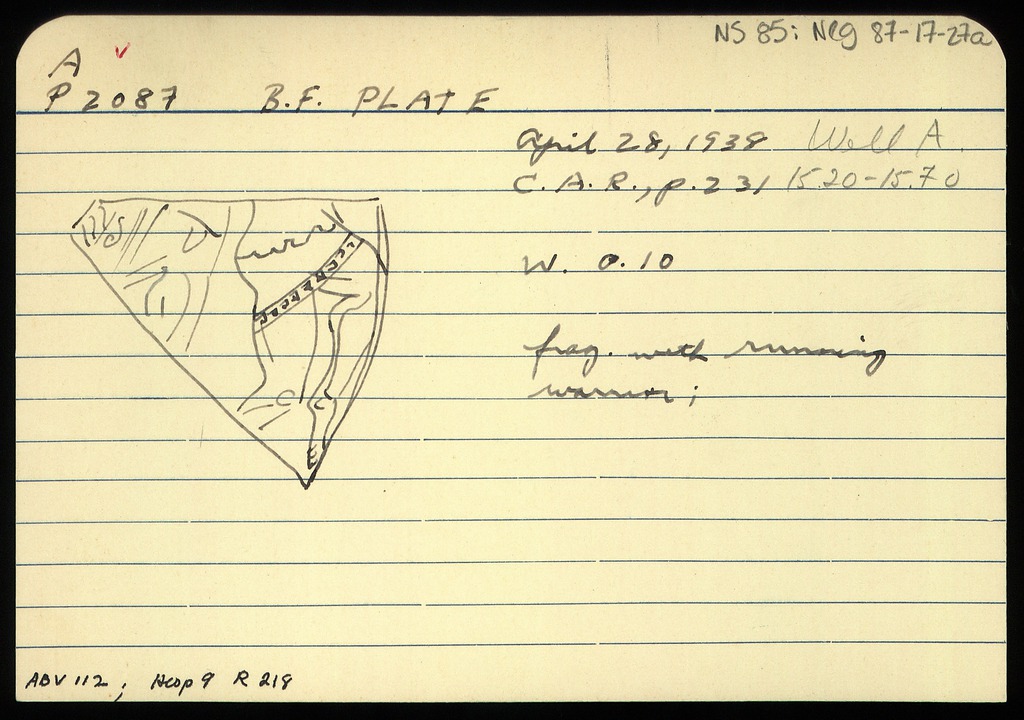 NS 85: Neg 87-17-27a
A v
P 2087 B.F. PLATE
April 28, 1938 Well A
C.A.R., p. 231 15.20-15.70
W. 0.10
frag. with running
warrior;
ABV 112; 219